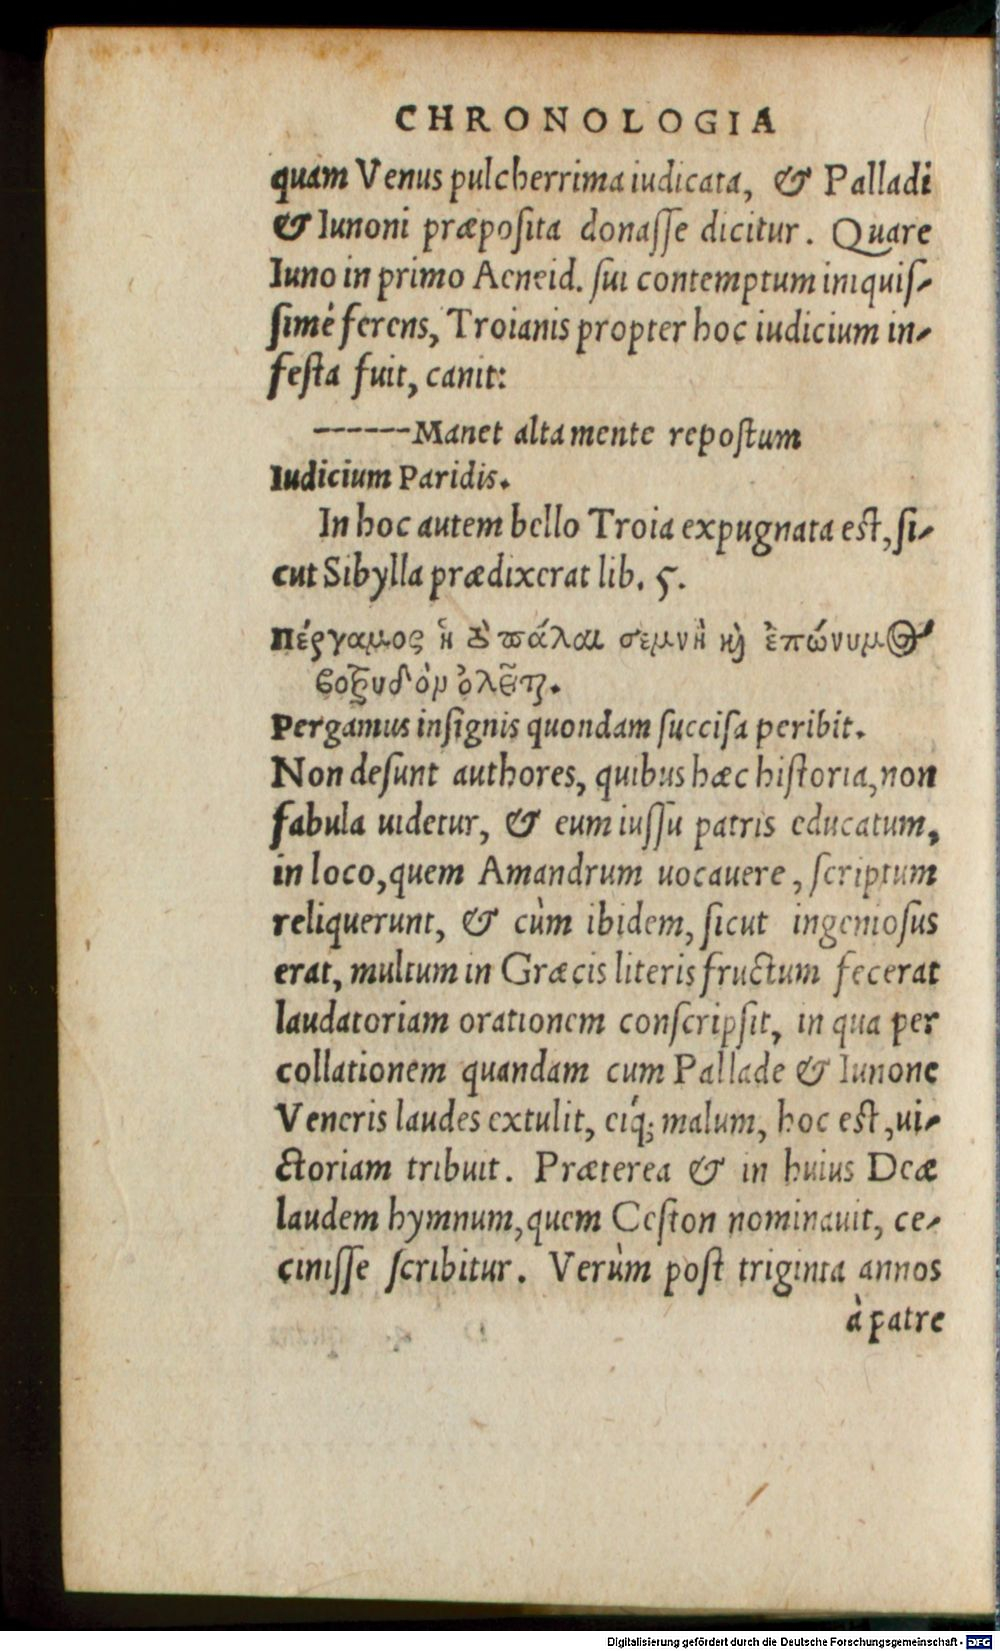 CHRONOLOGIA
quam Venus pulcherrima iudicata, & Palladi
& Iunoni præposita donasse dicitur. Quare
Iuno in primo Aeneid. sui contemptum iniquis-
simè ferens, Troianis propter hoc iudicium in-
festa fuit, canit:
------Manet alta mente repostum
Iudicium Paridis.
In hoc autem bello Troia expugnata est, si-
cut Sibylla prædixerat lib. 5.
Πέργαμος ἣ τὸ πάλαι σεμνὴ καὶ ἐπώνυμος
βοξυδὸν ὀλεῖται.
Pergamus insignis quondam succisa peribit.
Non desunt authores, quibus hæc historia, non
fabula uidetur, & eum iussu patris educatum,
in loco, quem Amandrum uocauere, scriptum
reliquerunt, & cùm ibidem, sicut ingeniosus
erat, multum in Græcis literis fructum fecerat
laudatoriam orationem conscripsit, in qua per
collationem quandam cum Pallade & Iunone
Veneris laudes extulit, eiq́; malum, hoc est, ui-
ctoriam tribuit. Præterea & in huius Deæ
laudem hymnum, quem Ceston nominauit, ce-
cinisse scribitur. Verùm post triginta annos
à patre
Digitalisierung gefördert durch die Deutsche Forschungsgemeinschaft - DFG